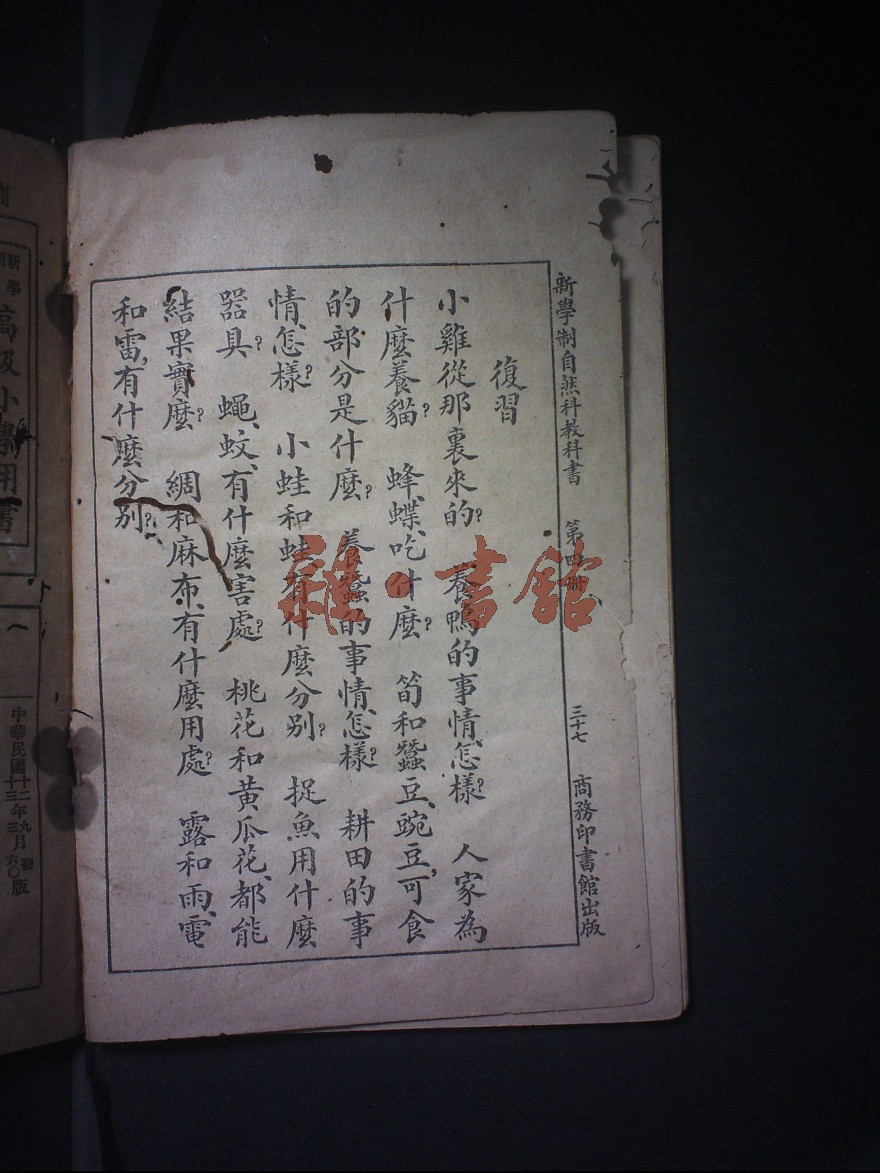 新學制自然科教科書 第四冊 三十七 商務印書館出版
復習
小雞從那裏來的？ 養鴨的事情、怎樣？ 人家為
什麼養貓？ 蜂、蝶、吃什麼？ 筍和蠶豆、豌豆、可食
的部分是什麼？ 養蠶的事情、怎樣？ 耕田的事
情、怎樣？ 小蛙和蛙、有什麼分别？ 捉魚用什麼
器具？ 蠅、蚊、有什麼害處？ 桃花和黃瓜花、都能
結果實麼？ 綢和麻布、有什麼用處？ 露和雨、電
和雷、有什麼分别？
雜·書館
新學制
高級小學用書
中華民國十二年九月初版
十三 三 六〇